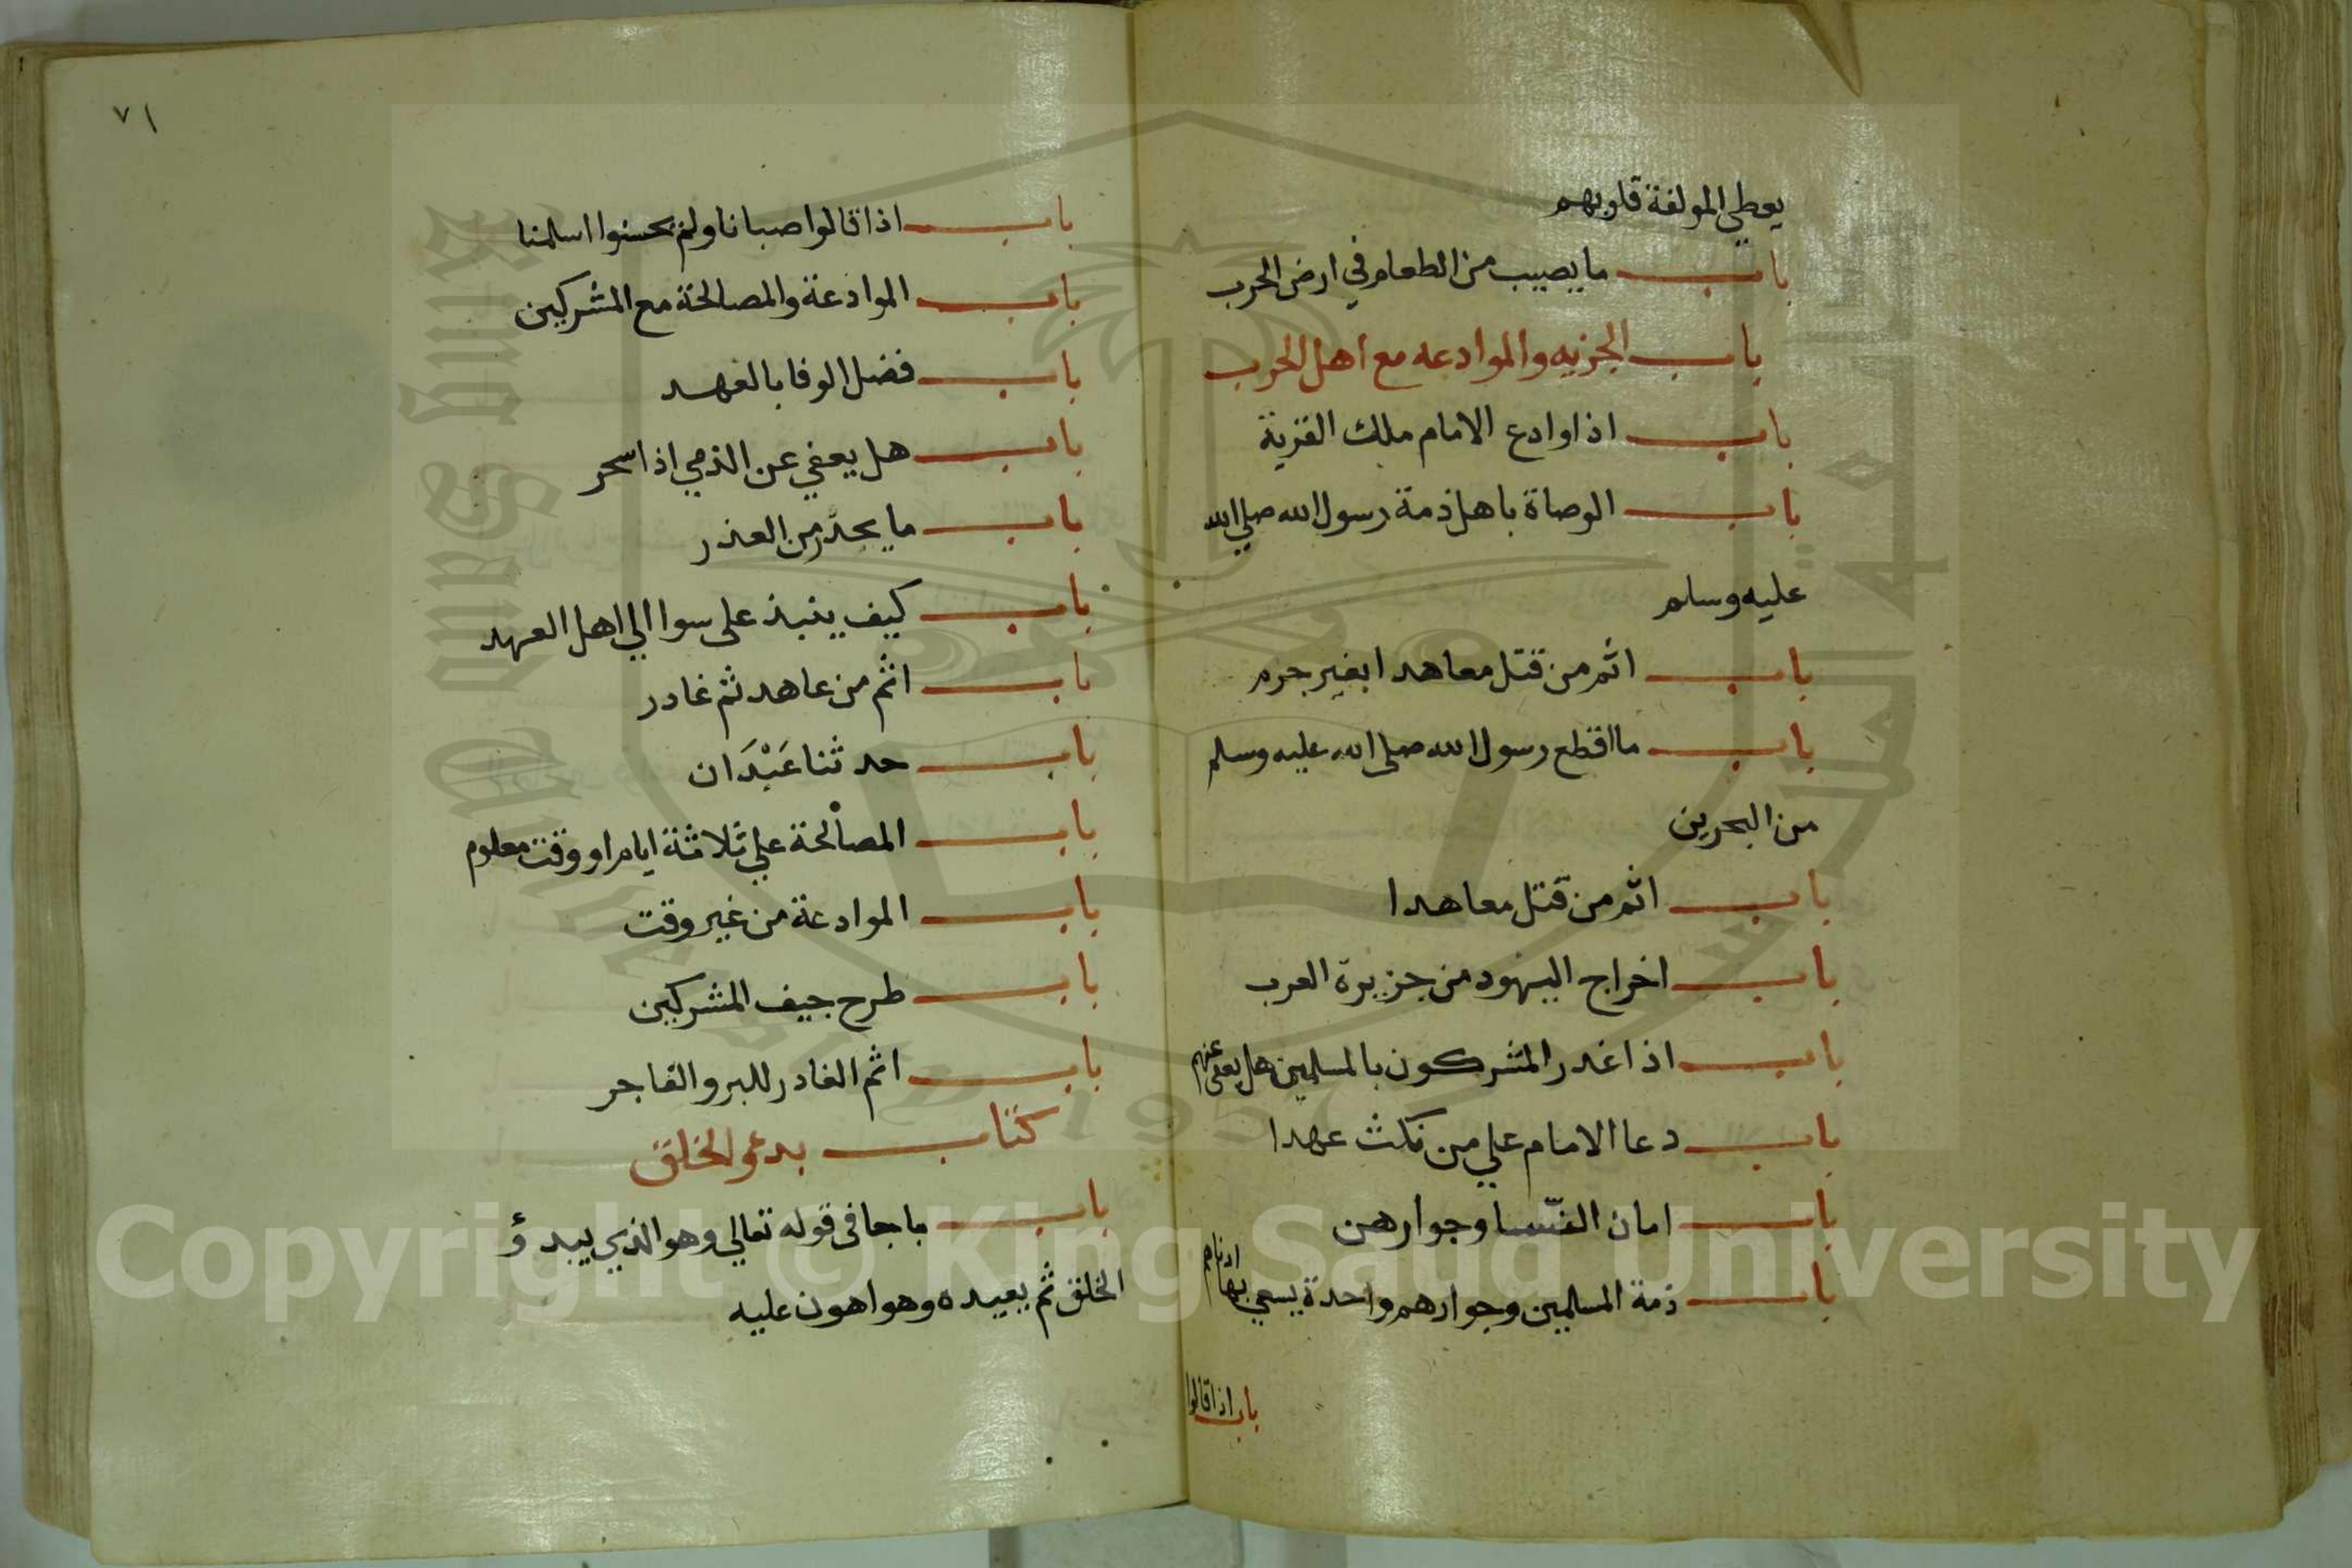 يعطي المولفة قلوبهم
باب ما يصيب من الطعام في ارض الحرب
باب الجزيه والموادعه مع اهل الحرب
باب اذا وادع الامام ملك القرية
باب الوصاة باهل ذمة رسول الله صلي الله
عليه وسلم
باب اثم من قتل معاهدا بغير جرم
باب ما اقطع رسول الله صلى الله عليه وسلم
من البحرين
باب اثم من قتل معاهدا
باب اخراج اليهود من جزيرة العرب
باب اذا غدر المشركون بالمسلمين هل يعفى عنهم
باب دعا الامام علي من نكث عهدا
باب امان النسا وجوارهن
باب ذمة المسلمين وجوارهم واحدة يسعي بها ادناهم
باب اذا قالوا
٧١
باب اذا قالوا صبانا ولم يحسنوا اسلمنا
باب الموادعة والمصالحة مع المشركين
باب فضل الوفا بالعهد
باب هل يعفي عن الذمي اذا سحر
باب ما يحذر من الغدر
باب كيف ينبذ على سوا الي اهل العهد
باب اثم من عاهد ثم غادر
باب حدثنا عَبْدَان
باب المصالحة علي ثلاثة ايام او وقت معلوم
باب الموادعة من غير وقت
باب طرح جيف المشركين
باب اثم الغادر للبر والفاجر
كتاب بدؤ الخلق
باب ما جا فى قوله تعالي وهو الذي يبدؤ
الخلق ثم يعيده وهو اهون عليه
Copyright © King Saud University
King Saud University
1957